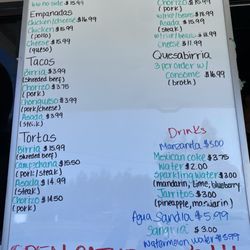 no side $15.99
Empanadas
Chicken/cheese $16.99
Chicken $15.99
(pollo)
Cheese $15.99
(queso)
Tacos
Birria $3.99
(shredded beef)
Chorizo $3.75
(pork)
Chongueso $3.99
(pork/steak)
Asada $3.99
(steak)
Tortas
Birria $15.99
(shredded beef)
Campechana $15.50
(pork/steak)
Asada $14.99
(steak)
Chorizo $14.50
(pork)
Chorizo $15.99
(pork)
Asada $15.99
(steak)
Cheese $11.99
Quesabirria
3 per order w/
consome $16.99
(broth)
Drinks
Manzanita $5.00
Mexican coke $3.75
Water $2.00
Sparkling water $3.00
(mandarin, lime, blueberry)
Jarritos $3.00
(pineapple, mosjairin)
Agua Sandia $5.99
Sangria $3.00
Watermelon water $5.99